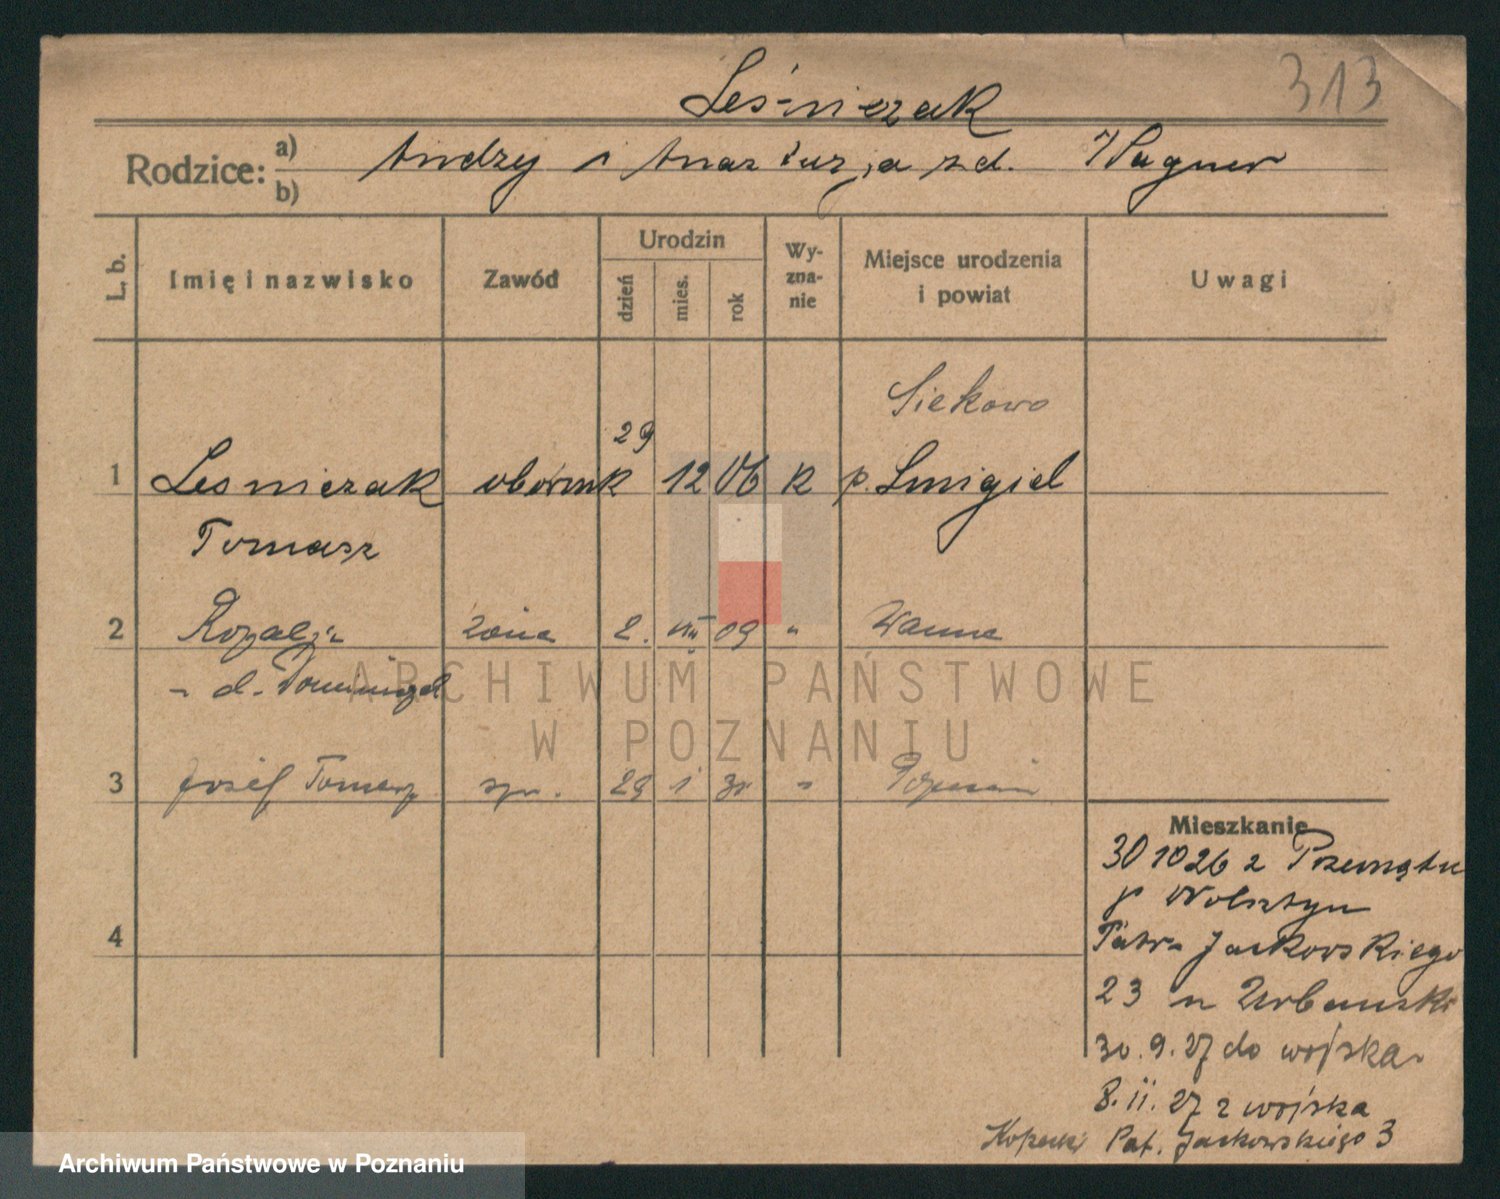 Leśniczak
313
Rodzice: a) b) Andrzy i Anastazja z d. Wagner
L. b.
Imię i nazwisko
Zawód
Urodzin
dzień
mies.
rok
Wy-
zna-
nie
Miejsce urodzenia
i powiat
Uwagi
Siekowo
29
1 Lesniczak 12 06 k p. Smigiel
Tomasz
2 Rozalja żona 2. VIII 09 " Wanne
- d.
3 Józef Tomasz syn. 29 1 "
4
Mieszkanie
30 10 26 z Przemętu
p Wolsztyn
Patr. Jackowskiego
23 u Urbanski
30.9.27 do wojska
8.11.27 z wojska
Pat. Jackowskiego 3
ARCHIWUM PAŃSTWOWE
W POZNANIU
Archiwum Państwowe w Poznaniu